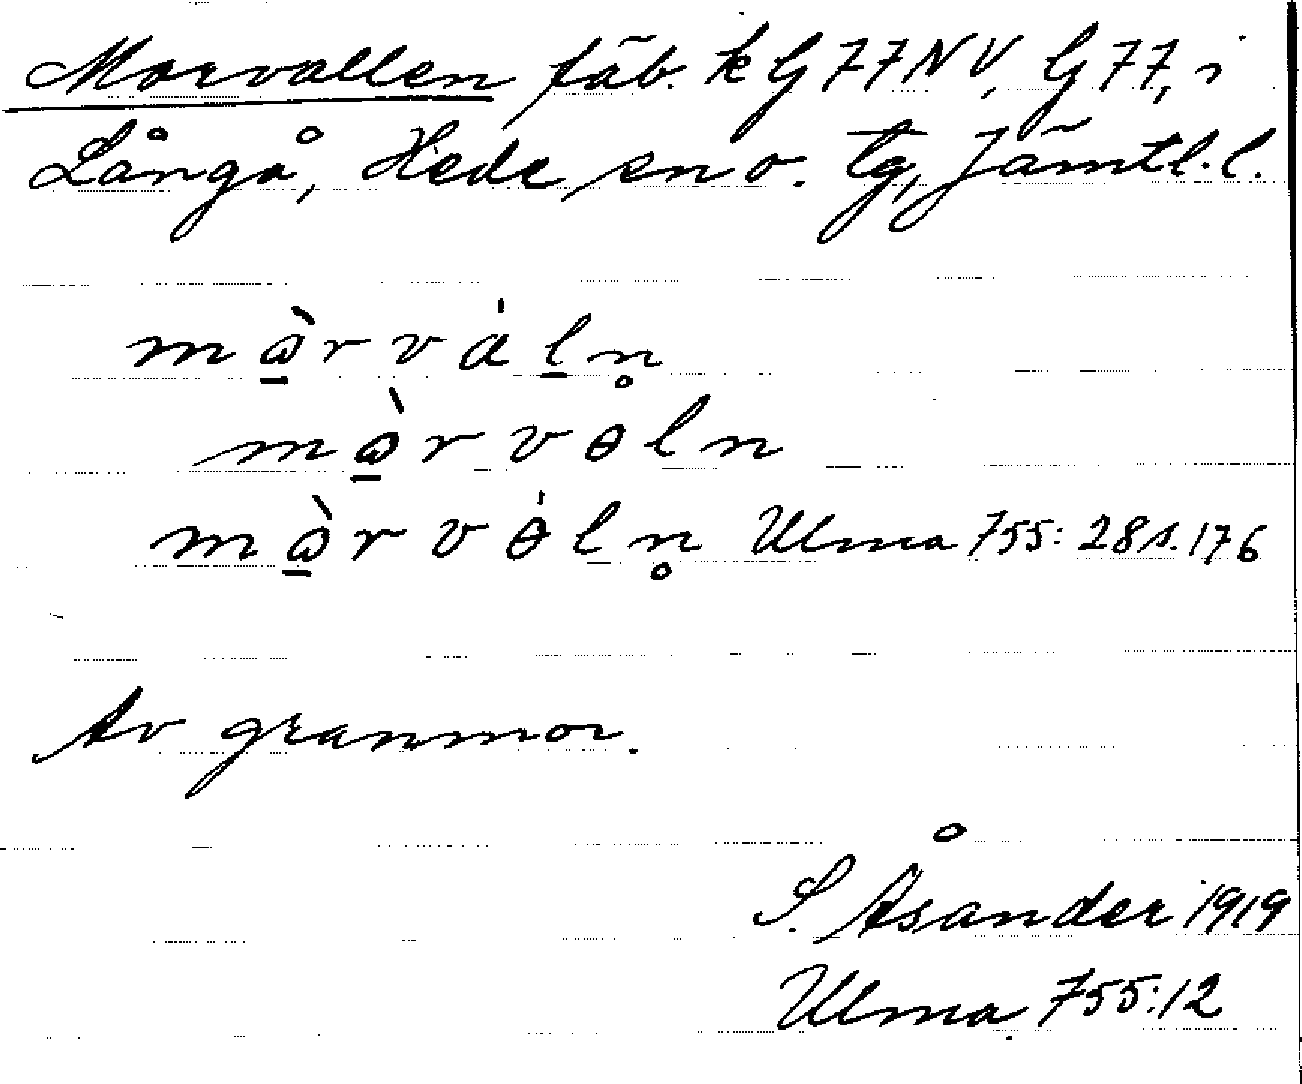 Morvallen fäb. k G 77 NV, G 77, i
Långå, Hede sn o. tg, Jämtl. l.
mɷ̱̀rváḻn̥
mɷ̱̀rvɵln
mɷ̱̀rvɵ́ln̥ Ulma 755: 28 s. 176
Av granmor.
S. Åsander 1919
Ulma 755:12